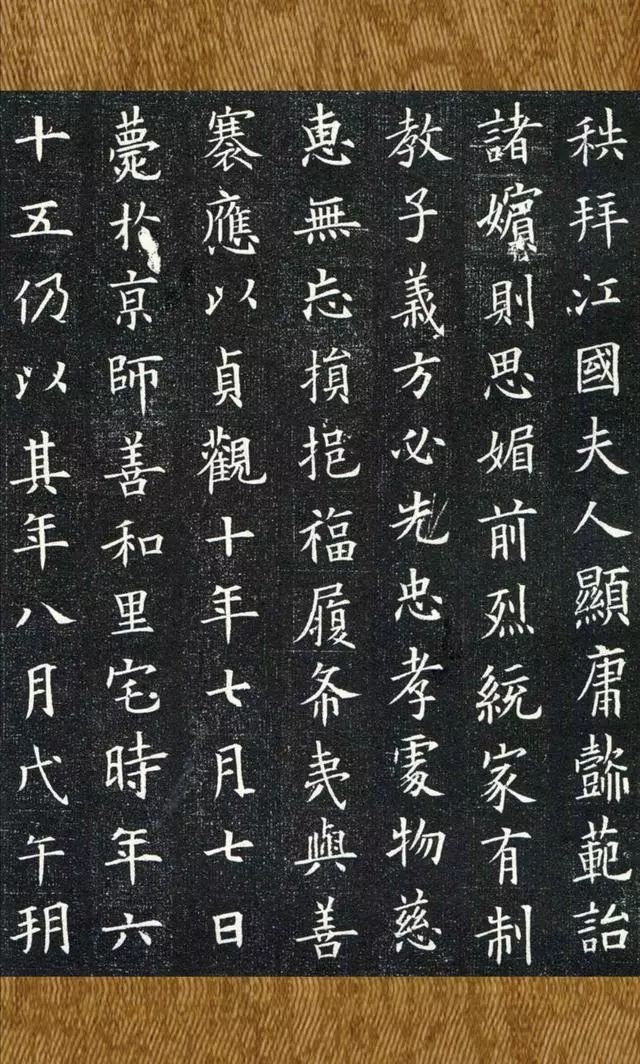 秩拜江國夫人顯庸懿範詒
諸嬪則思媚前烈統家有制
教子義方必先忠孝處物慈
惠無忘損挹福履希夷與善
褰應以貞觀十年七月七日
薨扵亰師善和里宅時年六
十五仍以其年八月戊午朔